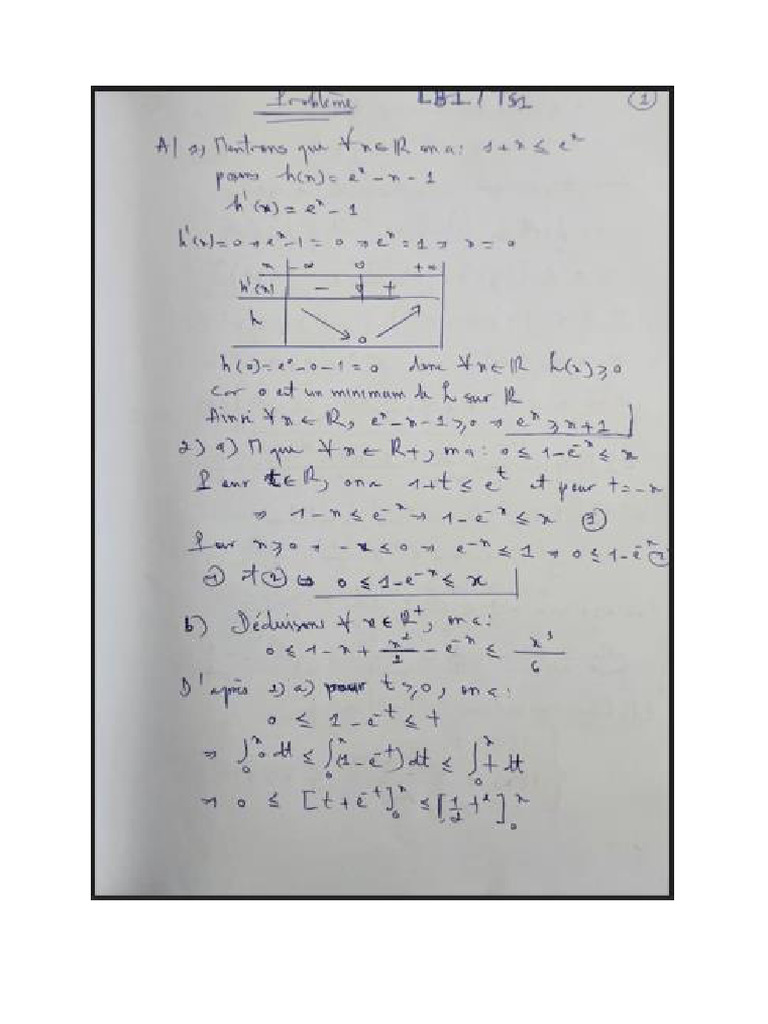 Problème LB1 / TS1 ①
A/ 1) Montrons que ∀x∈ℝ on a: 1+x ≤ eˣ
posons h(x) = eˣ - x - 1
h'(x) = eˣ - 1
h'(x) = 0 ⇒ eˣ - 1 = 0 ⇒ eˣ = 1 ⇒ x = 0
x -∞ 0 +∞
h'(x) - 0 +
h 0
h(0) = e⁰ - 0 - 1 = 0 donc ∀x∈ℝ h(x) ≥ 0
car 0 est un minimum de h sur ℝ
Ainsi ∀x∈ℝ, eˣ - x - 1 ≥ 0 ⇒ eˣ ≥ x+1
2) a) M que ∀x∈ℝ+, on a: 0 ≤ 1-e⁻ˣ ≤ x
Pour t∈ℝ, on a 1+t ≤ eᵗ et pour t = -x
⇒ 1-x ≤ e⁻ˣ ⇒ 1-e⁻ˣ ≤ x ①
Pour x ≥ 0 ⇒ -x ≤ 0 ⇒ e⁻ˣ ≤ 1 ⇒ 0 ≤ 1-e⁻ˣ ②
① et ② ⇒ 0 ≤ 1-e⁻ˣ ≤ x
b) Déduisons ∀x∈ℝ⁺, on a:
0 ≤ 1 - x + x²/2 - e⁻ˣ ≤ x³/6
D'après 2) a) pour t ≥ 0, on a:
0 ≤ 1 - e⁻ᵗ ≤ t
⇒ ∫₀ˣ 0 dt ≤ ∫₀ˣ (1-e⁻ᵗ) dt ≤ ∫₀ˣ t dt
⇒ 0 ≤ [t + e⁻ᵗ]₀ˣ ≤ [1/2 t²]₀ˣ